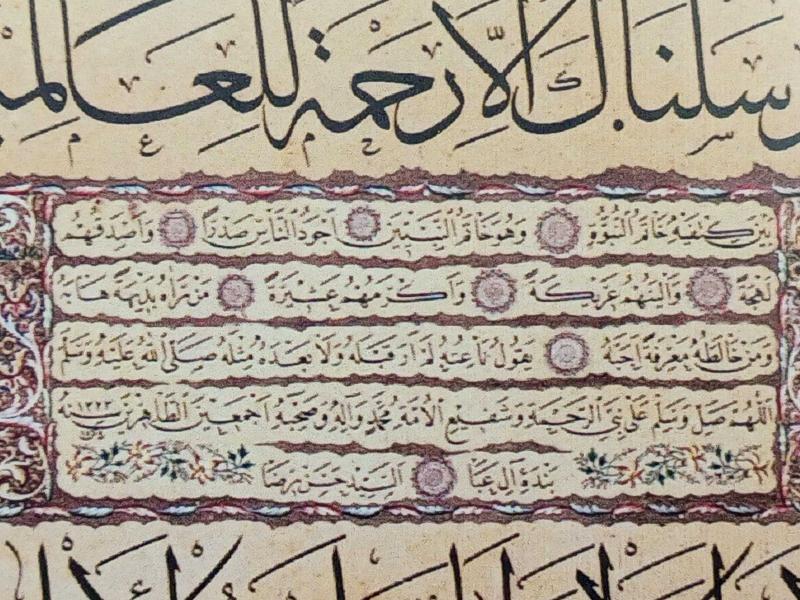 رسلناك الا رحمة للعالمي
بين كتفيه خاتم النبوة وهو خاتم النبيين اجود الناس صدرا واصدقهم
لهجة والينهم عريكة واكرمهم عشيرة من رآه بديهة هابه
ومن خالطه معرفة احبه يقول ناعته لم ار قبله ولا بعده مثله صلى الله عليه وسلم
اللهم صل وسلم على نبي الرحمة وشفيع الامة محمد وآله وصحبه اجمعين الطاهرين سنه ١٣٢٣
بنده آل عبا السيد حسن رضا